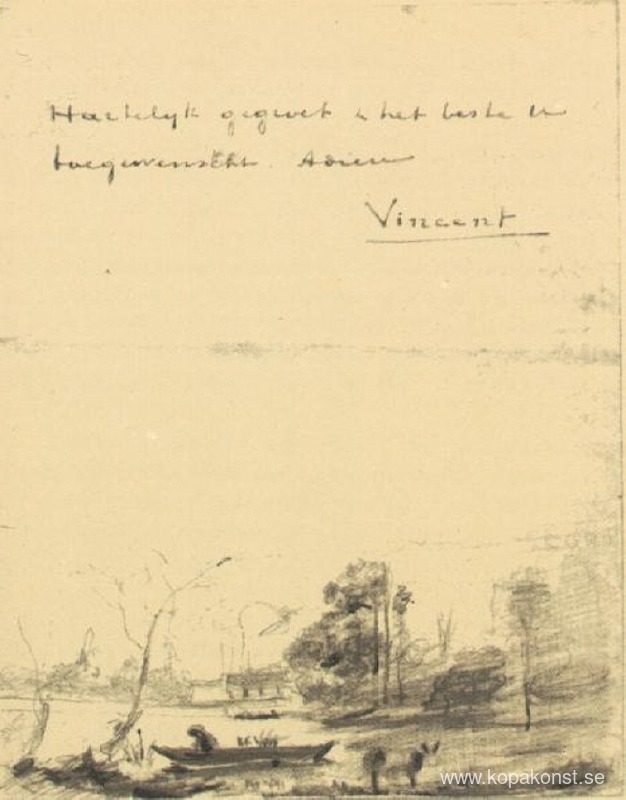 Hartelijk gegroet & het beste U
toegewenscht. Adieu
Vincent
www.kopakonst.se